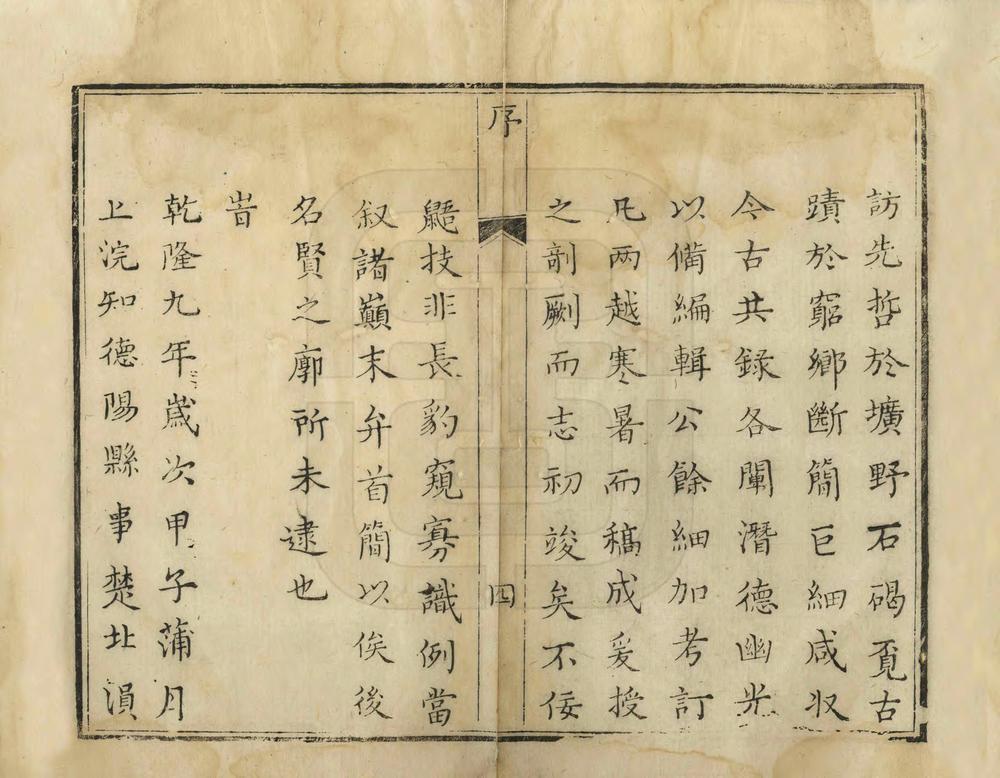 訪先哲於壙野石碣覔古
蹟於窮鄉斷簡巨細咸収
今古共錄各闡潛德幽光
以備編輯公餘細加考訂
凡兩越寒暑而稿成爰授
之剞劂而志初竣矣不佞
序
四
鼯技非長豹窺寡識例當
叙諸巔末弁首簡以俟後
名賢之廓所未逮也
旹
乾隆九年歲次甲子蒲月
上浣知德陽縣事楚北溳